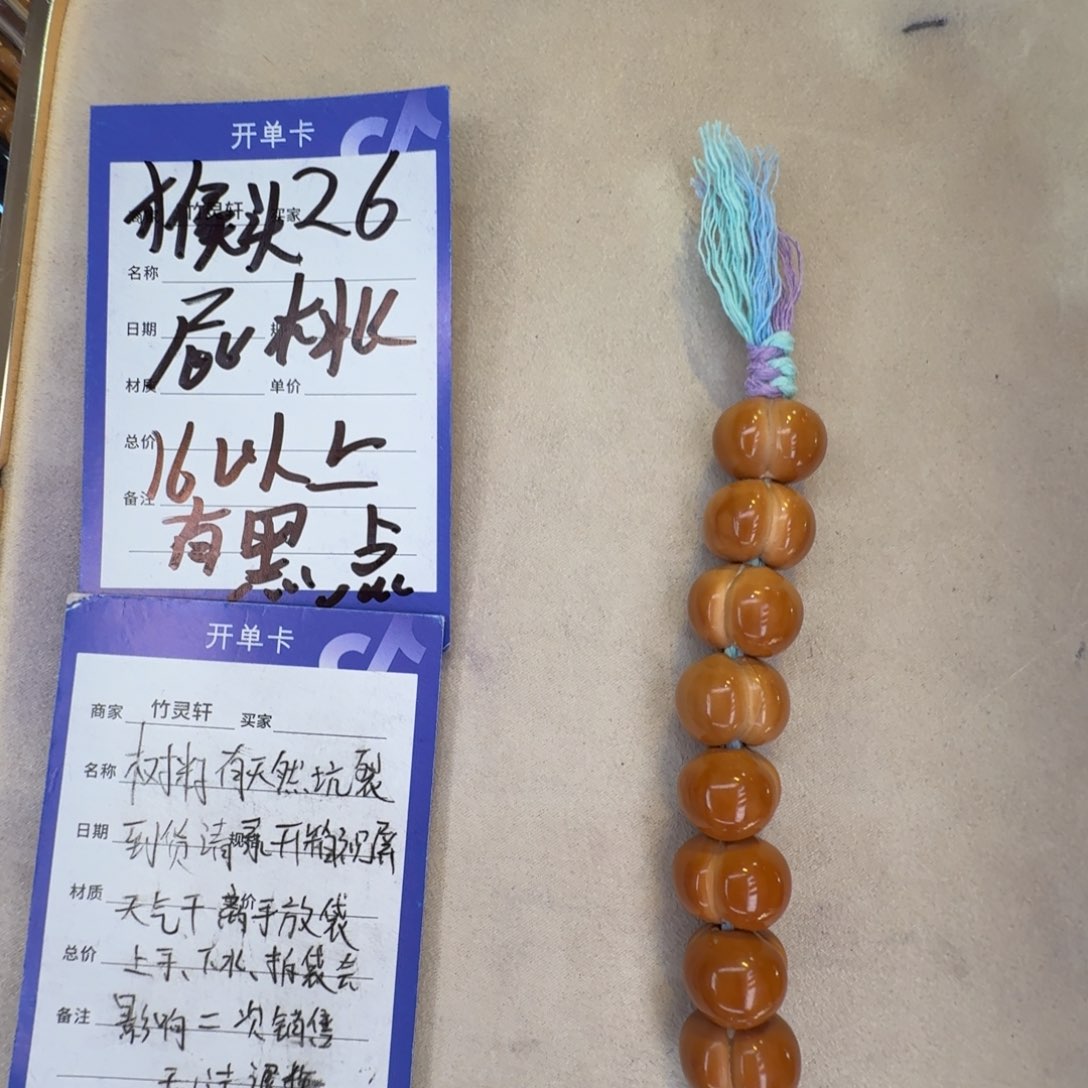 开单卡
猴头26
商家 竹灵轩 买家
名称
屁桃
日期
材质 单价
16以上
总价
备注
有黑点
开单卡
商家 竹灵轩 买家
名称 材料有天然坑裂
日期 到货请录开箱视屏
材质 天气干离手放袋
总价 上手、下水、拆袋会
备注 影响二次销售
无法退换